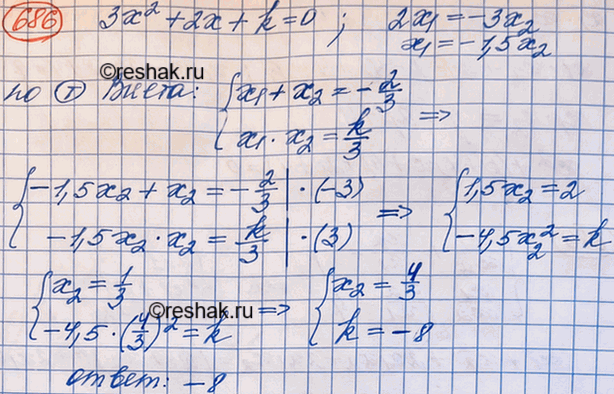 686 3x² + 2x + k = 0 ; 2x₁ = -3x₂
x₁ = -1,5x₂
©reshak.ru
по Ⓣ Виета: { x₁ + x₂ = -2/3
x₁ · x₂ = k/3 =>
{ -1,5x₂ + x₂ = -2/3 | · (-3) => { 1,5x₂ = 2
-1,5x₂ · x₂ = k/3 | · (3) -4,5x₂² = k
{ x₂ = 1/3 => { x₂ = 4/3
©reshak.ru
-4,5 · (4/3)² = k k = -8
ответ: -8